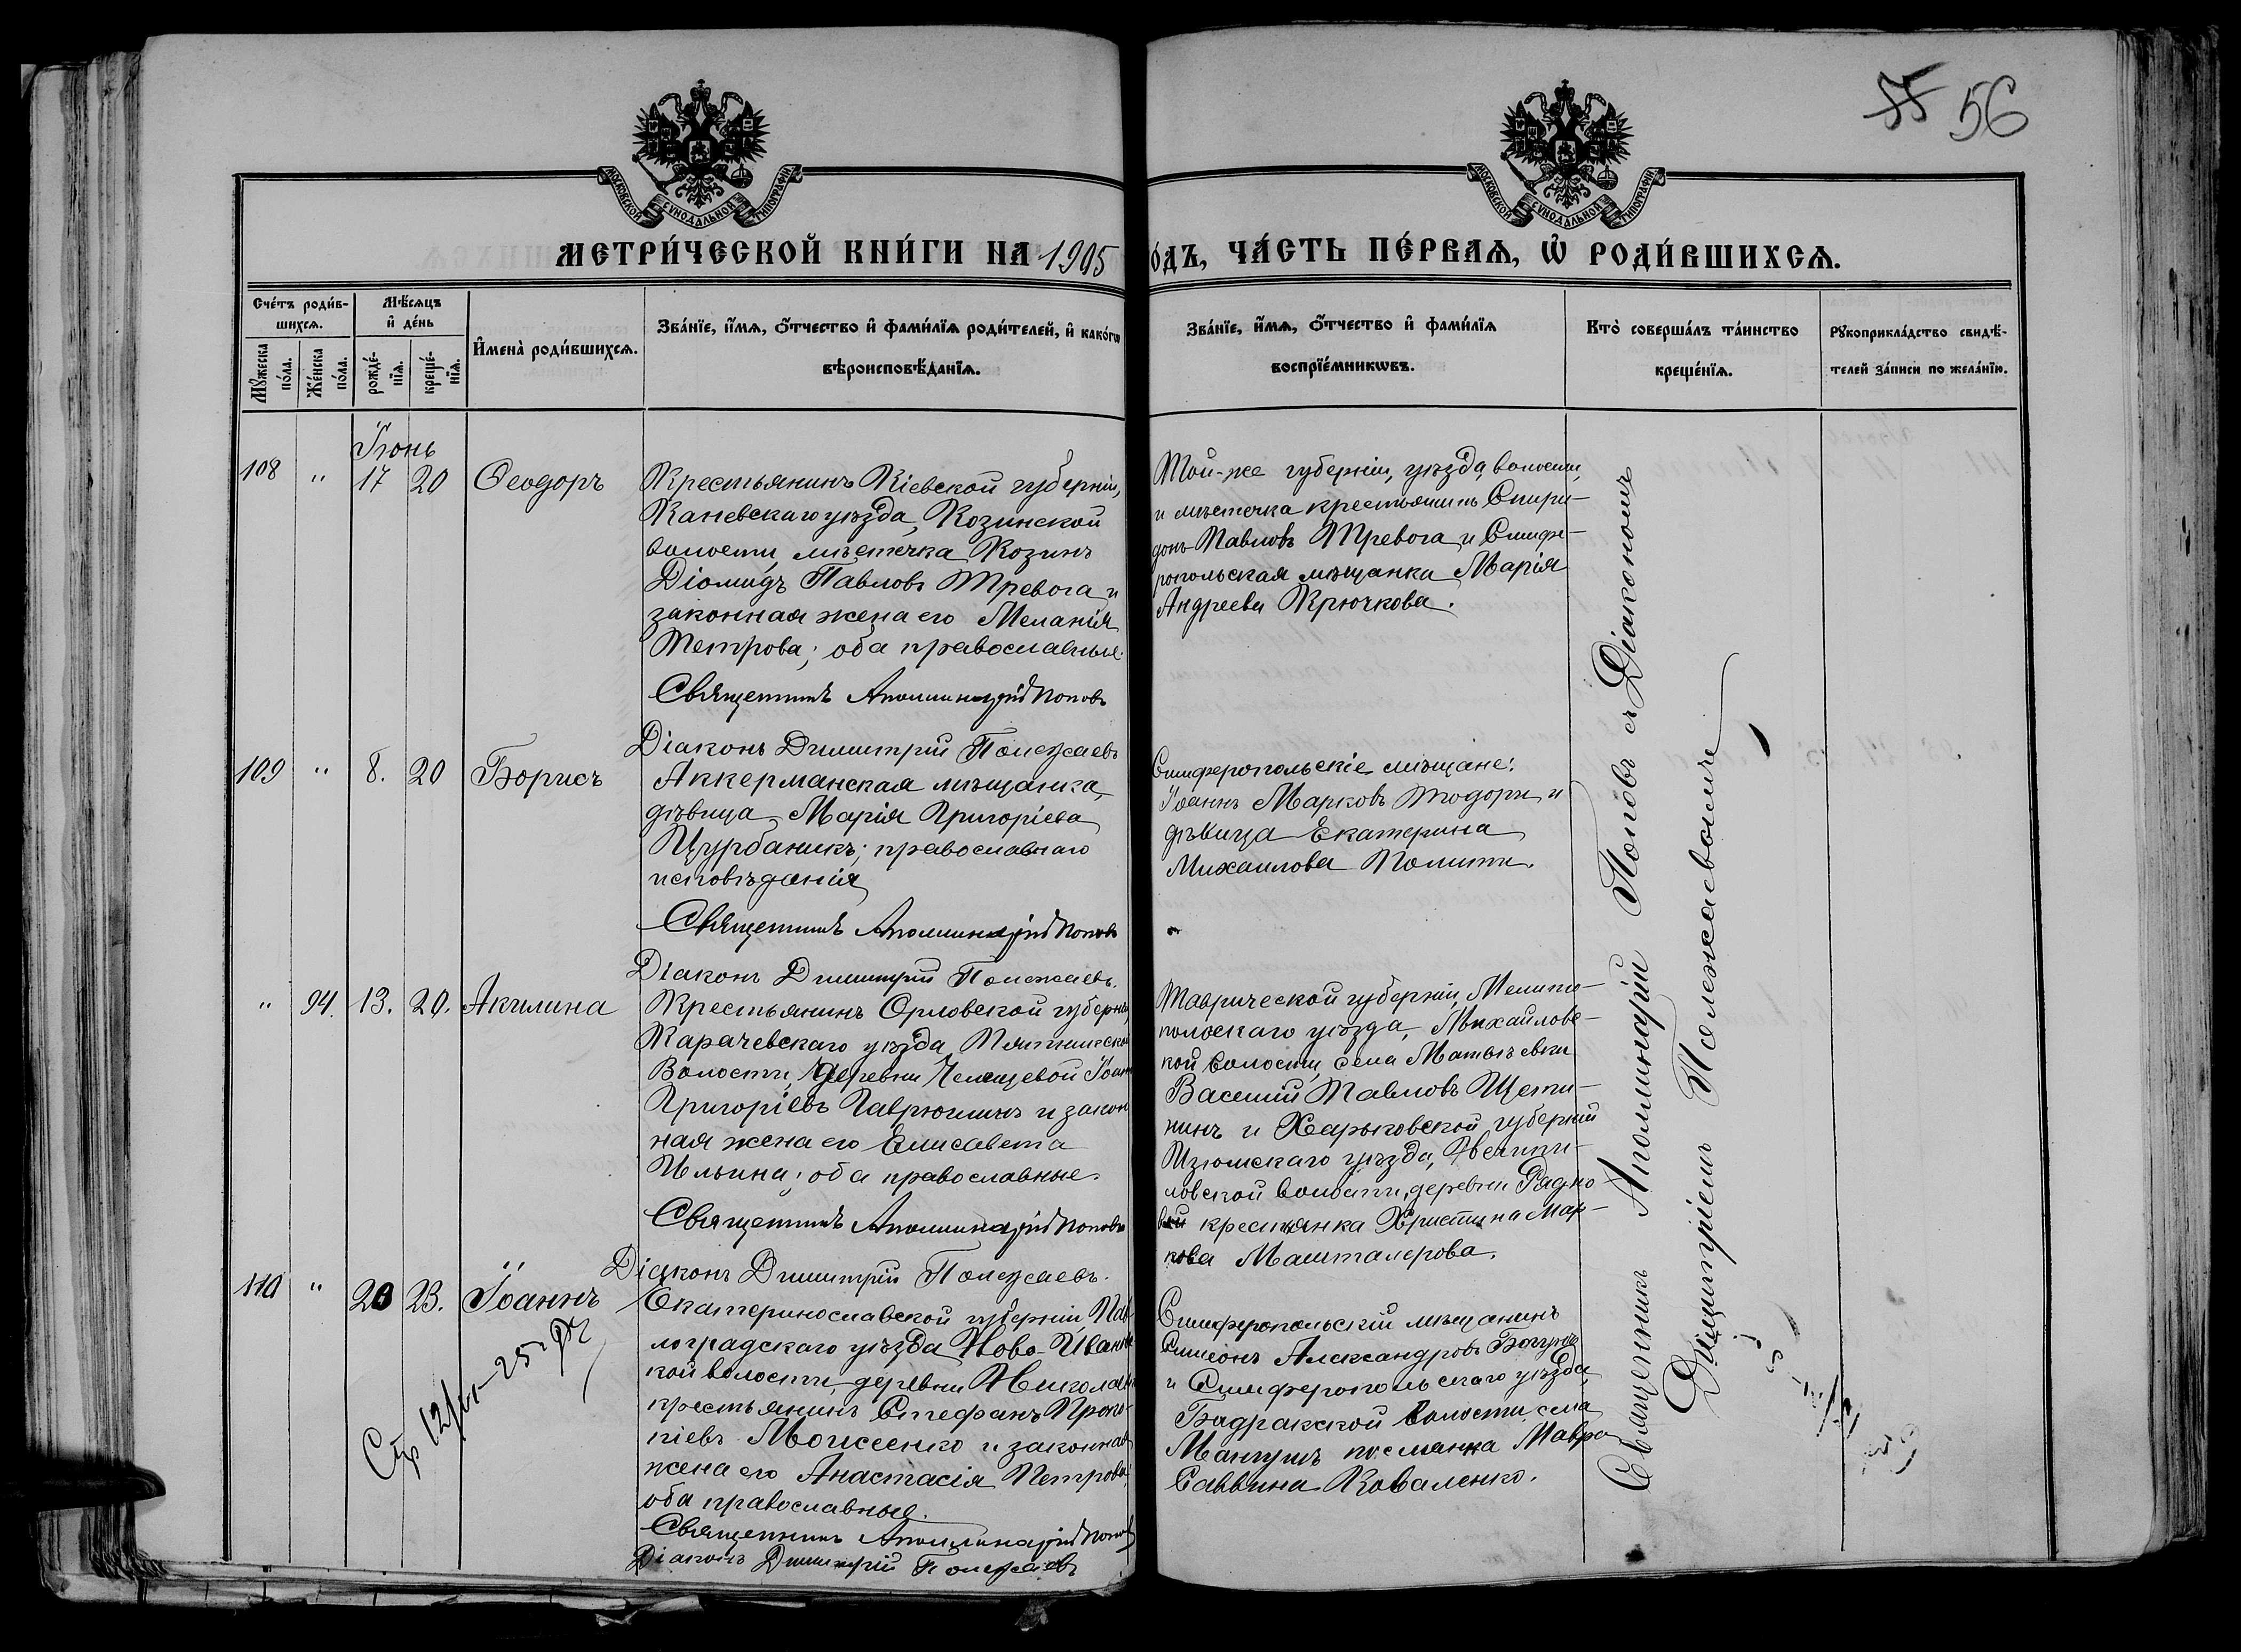 55 56
МОСКОВСКОЙ СѴНОДАЛЬНОЙ ТИПОГРАФІИ
МОСКОВСКОЙ СѴНОДАЛЬНОЙ ТИПОГРАФІИ
МЕТРИ́ЧЕСКОЙ КНИ́ГИ НА 1905
О́ДЪ, ЧА́СТЬ ПЕ́РВАѦ, Ѡ РОДИ́ВШИХСѦ.
Сче́тъ роди́в-
шихсѧ.
Мꙋжеска по́ла.
Же́нска по́ла.
Мѣ́сѧцъ
и҆ де́нь
рожде́-
нїѧ.
креще́-
нїѧ.
И҆мена̀ роди́вшихсѧ.
Зва́нїе, и҆́мѧ, ѻ҆́тчество и҆ фами́лїѧ роди́телей, и҆ како́гѡ
вѣроисповѣ́данїѧ.
Зва́нїе, и҆́мѧ, ѻ҆́тчество и҆ фами́лїѧ
воспрїе́мникѡвъ.
Кто̀ соверша́лъ та́инство
креще́нїѧ.
Рꙋкоприкла́дство свидѣ́-
телей за́писи по жела́нїю.
Іюнь
108 " 17 20 Ѳеодоръ
Крестьянинъ Кіевской губерніи,
Каневскаго уѣзда, Козинской
волости, мѣстечка Козинъ
Діомидъ Павловъ Тревога и
законная жена его Меланія
Петрова; оба православные.
Священникъ Аполлинарій Поповъ
Діаконъ Димитрій Полежаевъ
Той-же губерніи, уѣзда, волости,
и мѣстечка крестьянинъ Спири-
донъ Павловъ Тревога и Симфе-
ропольская мѣщанка Марія
Андреева Крючкова.
109 " 8. 20 Борисъ
Аккерманская мѣщанка,
дѣвица Марія Григоріева
Цурбаникъ; православнаго
исповѣданія
Священникъ Аполлинарій Поповъ
Діаконъ Димитрій Полежаевъ.
Симферопольскіе мѣщане:
Іоаннъ Марковъ Тодори и
дѣвица Екатерина
Михаилова Полити.
" 94. 13. 20. Акилина
Крестьянинъ Орловской губерніи,
Карачевскаго уѣзда,
Волости, деревни Іоаннъ
Григоріевъ Гаврюшинъ и закон
ная жена его Елисавета
Ильина; оба православные.
Священникъ Аполлинарій Поповъ
Діаконъ Димитрій Полежаевъ.
Таврической губерніи, Мелито-
польскаго уѣзда, Михайловс-
кой волости, села Матвѣевки
Василий Павловъ Щети-
нинъ и Харьковской губерніи
Изюмскаго уѣзда,
ловской волости, деревни Рядко
вой крестьянка Христина Мар-
кова Машталерова.
110 " 20 23. Іоаннъ
Екатеринославской губерніи, Пав
лоградскаго уѣзда Ново-Иванов
кой волости, деревни Николаевки
крестьянинъ Стефанъ Проко-
піевъ Моисеенко и законная
жена его Анастасія Петрова;
оба православные.
Священникъ Аполлинарій Поповъ
Діаконъ Димитрій Полежаевъ
Симферопольскій мѣщанинъ
Симеонъ Александровъ
и Симферопольскаго уѣзда,
Бадракской волости, села
Мангушъ поселянка Мавра
Саввина Коваленко.
Священникъ Аполлинарій Поповъ съ Діакономъ
Димитріемъ Полежаевымъ